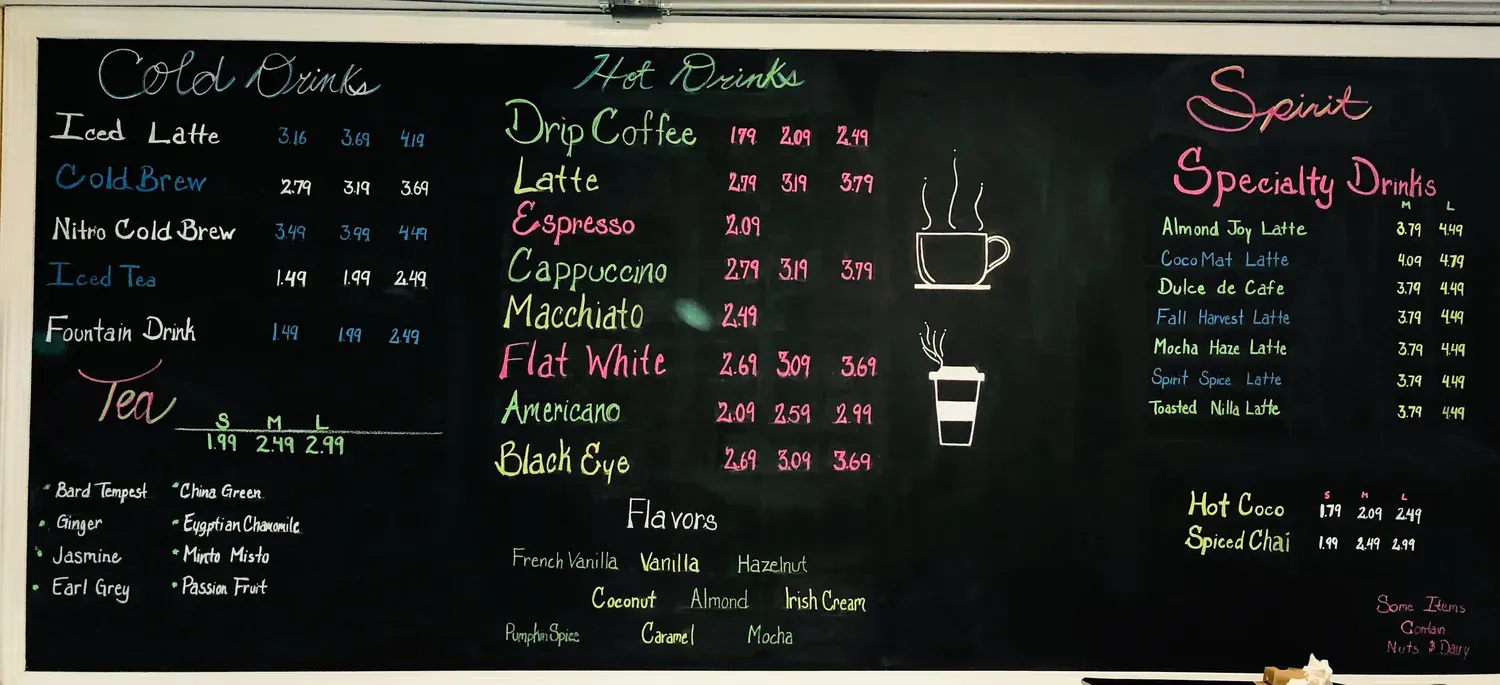 Cold Drinks
Iced Latte 3.16 3.69 4.19
Cold Brew 2.79 3.19 3.69
Nitro Cold Brew 3.49 3.99 4.49
Iced Tea 1.49 1.99 2.49
Fountain Drink 1.49 1.99 2.49
Tea
S M L
1.99 2.49 2.99
Bard Tempest
Ginger
Jasmine
Earl Grey
China Green
Eygptian Chamomile
Minto Misto
Passion Fruit
Hot Drinks
Drip Coffee 1.79 2.09 2.49
Latte 2.79 3.19 3.79
Espresso 2.09
Cappuccino 2.79 3.19 3.79
Macchiato 2.49
Flat White 2.69 3.09 3.69
Americano 2.09 2.59 2.99
Black Eye 2.69 3.09 3.69
Flavors
French Vanilla Vanilla Hazelnut
Coconut Almond Irish Cream
Pumpkin Spice Caramel Mocha
Spirit
Specialty Drinks
M L
Almond Joy Latte 3.79 4.49
Coco Mat Latte 4.09 4.79
Dulce de Cafe 3.79 4.49
Fall Harvest Latte 3.79 4.49
Mocha Haze Latte 3.79 4.49
Spirit Spice Latte 3.79 4.49
Toasted Nilla Latte 3.79 4.49
S M L
Hot Coco 1.79 2.09 2.49
Spiced Chai 1.99 2.49 2.99
Some Items
Contain
Nuts & Dairy